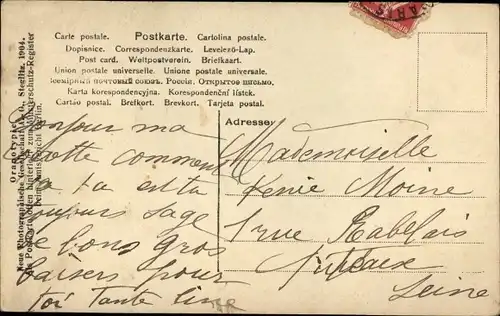 Carte postale. Postkarte. Cartolina postale.
Dopisnice. Correspondenzkarte. Levelező-Lap.
Post card. Weltpostverein. Briefkaart.
Union postale universelle. Unione postale universale.
Всемірный почтовый союзъ. Россія. Открытое письмо.
Karta korespondencyjna. Korespondenční lístek.
Cartão postal. Brefkort. Brevkort. Tarjeta postal.
Orangotypie
Neue Photographische Gesellschaft, A.-G., Steglitz. 1904.
Bonjour ma
comment
ta va est tu
toujours sage
de bons gros
baisers pour
toi Tante Line
Adresse:
Mademoiselle
Renée Moine
1 rue Rabelais
Puteaux
Seine